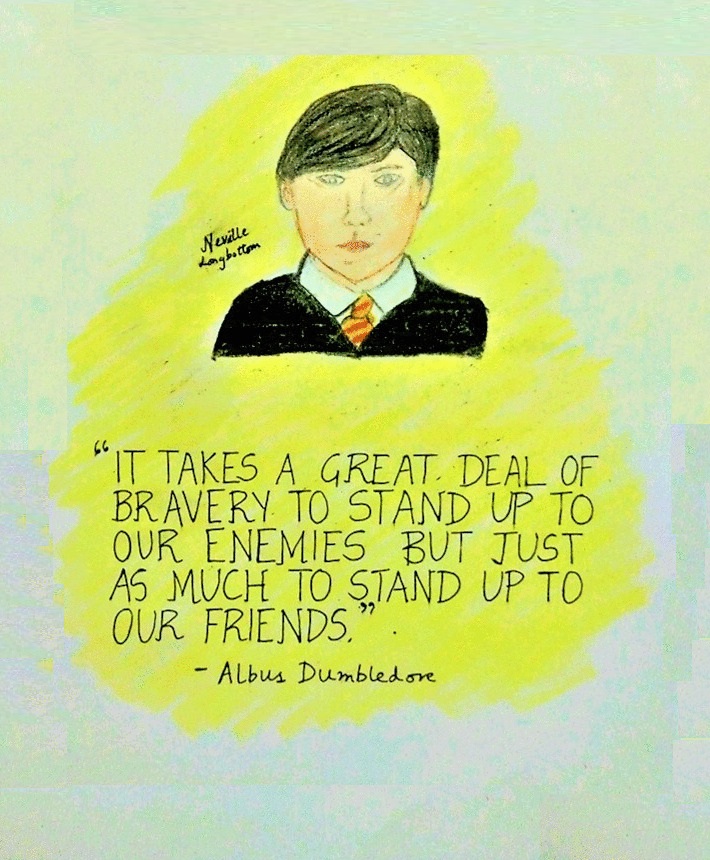 Neville
Longbottom
“IT TAKES A GREAT DEAL OF
BRAVERY TO STAND UP TO
OUR ENEMIES BUT JUST
AS MUCH TO STAND UP TO
OUR FRIENDS.”
- Albus Dumbledore